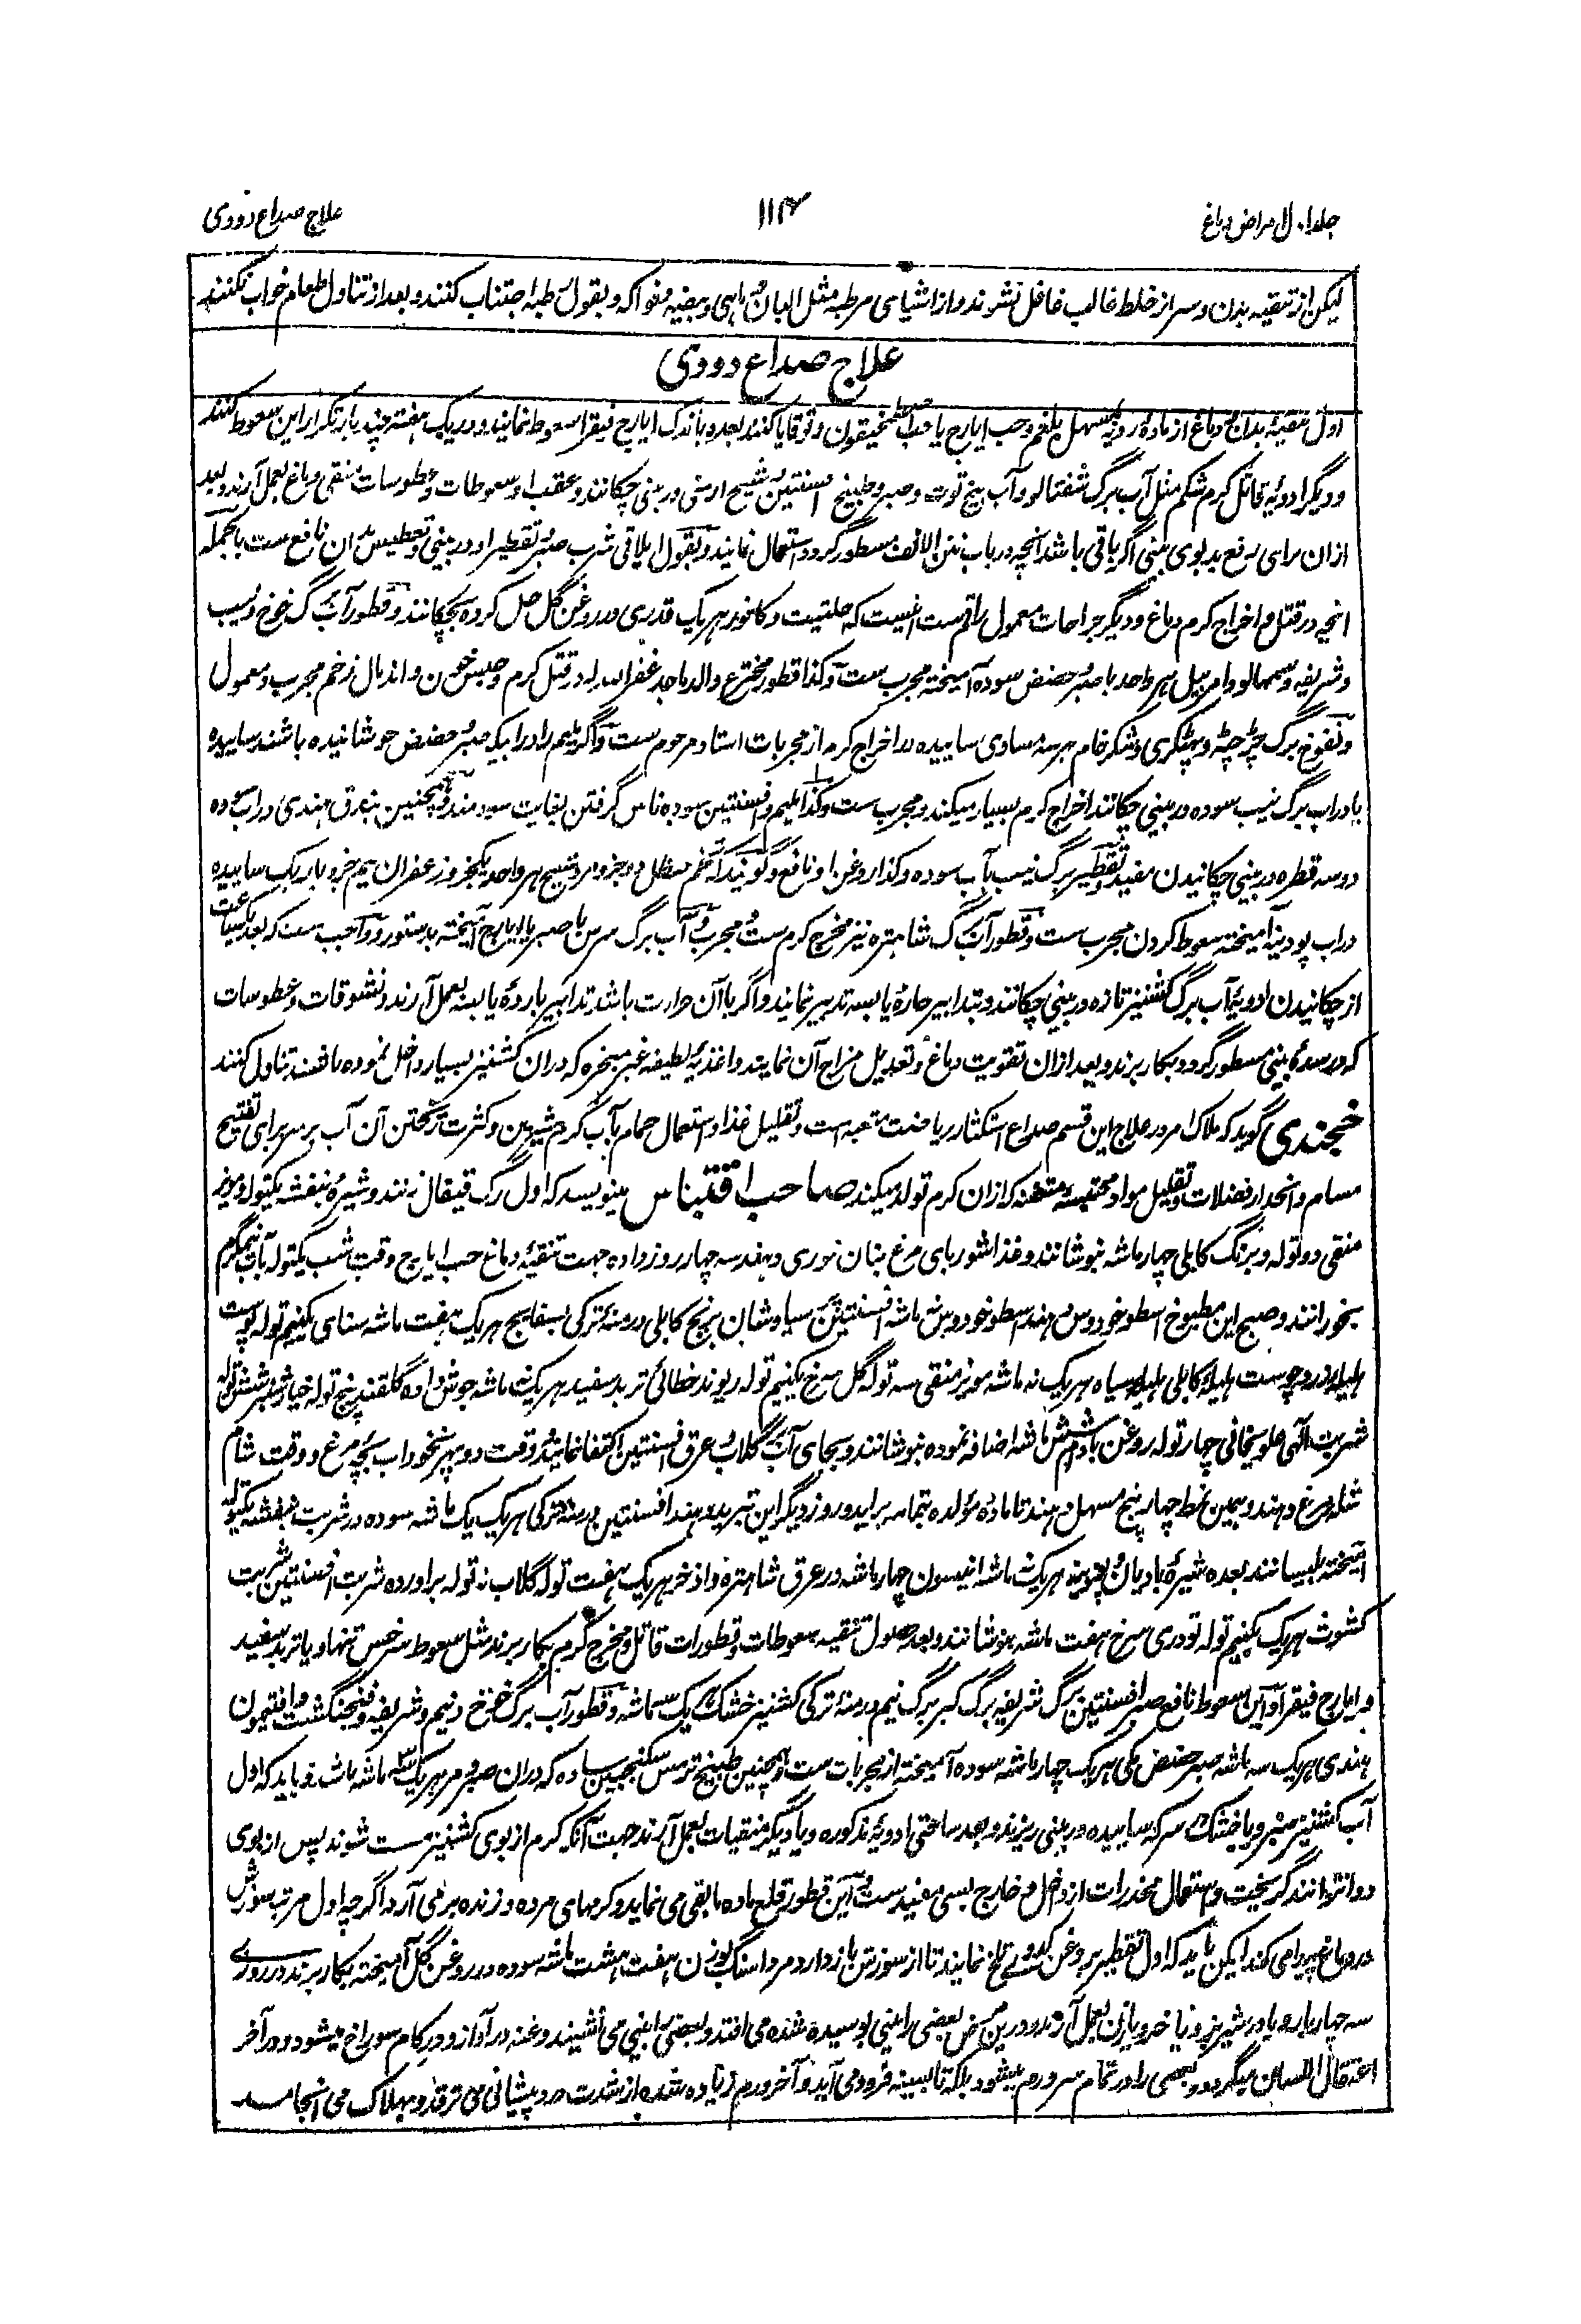 جلد اول امراض دماغ
۱۱۴
علاج صداع دودی
لیکن از تنقیه بدن و سر از خلط غالب غافل نشوند و از اشیای مرطبه مثل البان و ماهی و بیضه و فواکه و بقول رطبه اجتناب کنند و بعد از تناول طعام خواب نکنند
علاج صداع دودی
اول تنقیهٔ بدن و دماغ از مادهٔ ردیه بمسهل بلغم و حب ایارج یا حب اصطمخیقون و قوقایا کنند بعده باندک ایارج فیقرا سعوط نمایند و در یک هفته چند بار تکرار این سعوط کنند
و دیگر ادویهٔ قاتل کرم شکم مثل آب برگ شفتالو و آب بیخ توت و صبر و طبیخ افسنتین و شیح ارمنی در بینی چکانند و عقب او سعوطات و عطوسات منقی دماغ بعمل آرند و بعد
ازان برای رفع بدبوی بینی اگر باقی باشد آنچه در باب نتن الانف مسطور گردد استعمال نمایند و بقول ایلاقی شرب صبر و تقطیر او در بینی و تعطیس بدان نافع ست بالجمله
آنچه در قتل و اخراج کرم دماغ و دیگر جراحات معمول راقم ست اینست که حلتیت و کافور هر یک قدری در روغن گل حل کرده بچکانند و قطور آب برگ خوخ و نیب
و شریفه و سمهالو و امربیل هر واحد با صبر و حضض سوده آمیخته مجرب ست و کذا قطور مخترع والد ماجد غفر الله له در قتل کرم و حبس خون و اندمال زخم مجرب و معمول
و نفوخ برگ چرچٹه و پهٹکری و شکر خام هر سه مساوی ساییده در اخراج کرم از مجربات استاد مرحوم ست و اگر پلیم را در آبیکه صبر و حضض جوشانیده باشند ساییده
یا در آب برگ نیب سوده در بینی چکانند اخراج کرم بسیار میکند و مجرب ست و کذا پلیم و افسنتین سوده ناس گرفتن بغایت سودمند و همچنین بندق هندی در آب سوده
دو سه قطره در بینی چکانیدن مفید و تقطیر برگ نیب بآب سوده و کذا روغن او نافع و گویند که تخم حنظل دو جزو مر و شیح هر واحد یکجزو زعفران نیم جزو باریک ساییده
در آب پودینه آمیخته سعوط کردن مجرب ست و قطور آب برگ شاهتره نیز مخرج کرم ست و مجرب و آب برگ سرس با صبر یا ایارج آمیخته بدستور و واجب ست که بعد یکساعت
از چکانیدن ادویه آب برگ کشنیز تازه در بینی چکانند و بتدابیر حارهٔ یابسه تدبیر نمایند و اگر با آن حرارت باشد تدابیر باردهٔ یابسه بعمل آرند و نشوقات و عطوسات
که در سدهٔ بینی مسطور گردد بکار برند و بعد ازان تقویت دماغ و تعدیل مزاج آن نمایند و اغذیهٔ لطیفه غیر مبخره که دران کشنیز بسیار داخل نموده باشند تناول کنند
خجندی گوید که ملاک امر در علاج این قسم صداع استکثار ریاضت متعبه است و تقلیل غذا و استعمال حمام بآب گرم شیرین و کثرت ریختن آن آب بر سر برای تفتیح
مسام و انحدار فضلات و تقلیل مواد محتبسه متعفنه که ازان کرم تولد میکند صاحب اقتباس مینویسد که اول رگ قیفال زنند و شیرهٔ بنفشه یکتوله و مویز
منقی دو توله و برنگ کابلی چهار ماشه بنوشانند و غذا شوربای مرغ بنان نوری دهند سه چهار روز داده جهت تنقیهٔ دماغ حب ایارج وقت شب یکتوله بآب نیمگرم
بخورانند و صبح این مطبوخ اسطوخودوس دهند اسطوخودوس ماشه افسنتین پرسیاوشان برنج کابلی درمنهٔ ترکی بسفایج هر یک هفت ماشه سنای مکی نیم توله پوست
هلیلهٔ زرد پوست هلیلهٔ کابلی هلیلهٔ سیاه هر یک نه ماشه مویز منقی سه توله گل سرخ یکنیم توله ریوند خطائی تربد سفید هر یک ماشه جوش داده گلقند پنج توله خیارشنبر شش توله
شربت الهی علویخانی چهار توله روغن بادام شش ماشه اضافه نموده بنوشانند و بجای آب گلاب و عرق افسنتین اکتفا نمایند و وقت دوپهر نخوداب بچهٔ مرغ و وقت شام
شله مرغ دهند و بهمین نمط چهار پنج مسهل دهند تا مادهٔ مولده بتمامه برآید و روز دیگر این تبرید دهند افسنتین درمنهٔ ترکی هر یک یک ماشه سوده در شربت بنفشه یکتوله
آمیخته بلیسانند بعده شیرهٔ بادیان هر یک ماشه انیسون چهار ماشه در عرق شاهتره و اذخر هر یک هفت توله گلاب نه توله برآورده شربت افسنتین شربت
کشوث هر یک یکنیم توله تودری سرخ هفت ماشه بنوشانند و بعد حصول تنقیه سعوطات و قطورات قاتل و مخرج کرم بکار برند مثل سعوط سرخس تنها و یا تربد سفید
و ایارج فیقرا و این سعوط نافع صبر افسنتین برگ شریفه برگ کبر برگ نیم درمنهٔ ترکی کشنیز خشک هر یک سه ماشه و قطور آب برگ خوخ و نیم و شریفه و فنجنگشت و افتیمون
هندی هر یک سه ماشه صبر حضض مکی هر یک چهار ماشه سوده آمیخته از مجربات ست و همچنین طبیخ ترمس سکنجبین ساده که دران صبر و مر هر یک سه ماشه باشد و باید که اول
آب کشنیز سبز و یا خشک بسرکه ساییده در بینی ریزند و بعد ساعتی ادویهٔ مذکوره و یا دیگر منقیات بعمل آرند جهت آنکه کرم از بوی کشنیز مست شوند پس از بوی
دوا نتوانند گریخت و استعمال مخدرات از داخل و خارج بسی مفید ست و این قطور قلع ماده مابقی می نماید و کرمهای مرده و زنده برمی آرد اگرچه اول مرتبه سوزش
در دماغ پیدا می کند لیکن باید که اول تقطیر بروغن کدوی تلخ نمایند تا از سوزش باز دارد مرداسنگ بوزن هفت هشت ماشه سوده در روغن گل آمیخته بکار برند در روزی
سه چهار بار و یا در شیر بز و یا خر و یا زن بعمل آرند و درین مرض بعضی را بینی بوسیده شده می افتد و بعضی را بینی می نشیند و غنه در آواز و در کام سوراخ میشود و در آخر
اعتقال اللسان میگردد و بعضی را در تمام سر ورم میشود بلکه تا بسینه فرود می آید و آخر ورم زیاده شده از شدت درد پیشانی می ترقد و بهلاک می انجامد